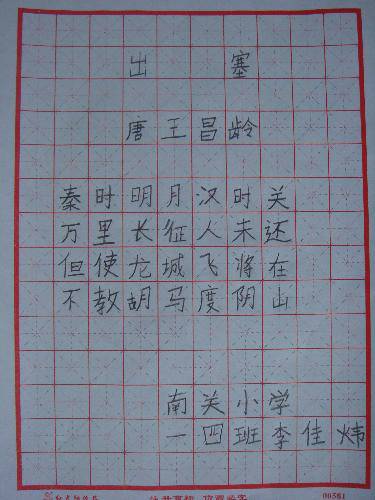 出塞
唐王昌龄
秦时明月汉时关
万里长征人未还
但使龙城飞将在
不教胡马度阴山
南关小学
一四班李佳炜
00581